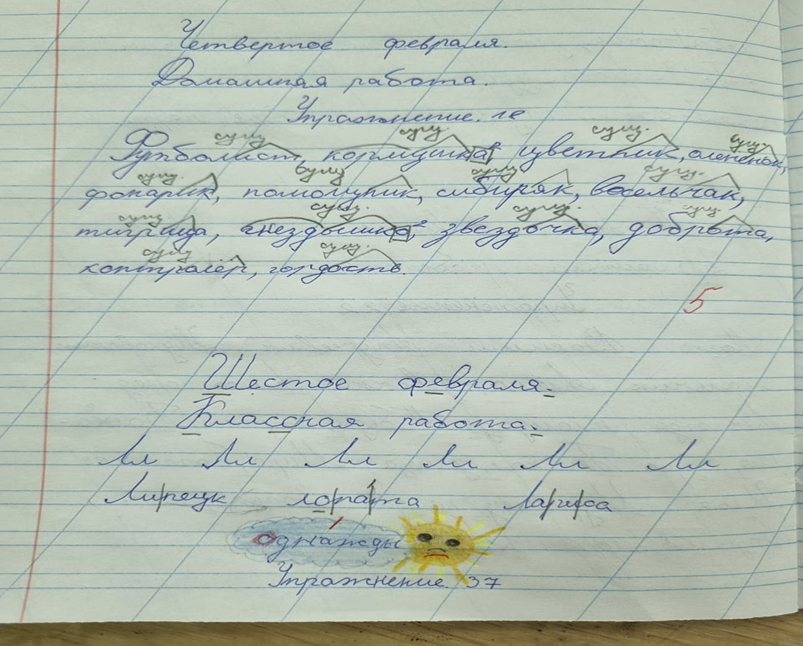 Четвертое февраля.
Домашняя работа.
Упражнение. 1е
сущ. сущ. сущ. сущ.
Футболист, кормушка, цветник, оленёнок,
сущ. сущ. сущ.
фонарик, помощник, сибиряк, весельчак,
сущ. сущ. сущ. сущ.
тигрица, гнёздышко, звездочка, доброта,
сущ. сущ.
контролёр, гордость.
5
Шестое февраля.
Классная работа.
Лл Лл Лл Лл Лл Лл
Липецк лопата Лариса
однажды
Упражнение 37